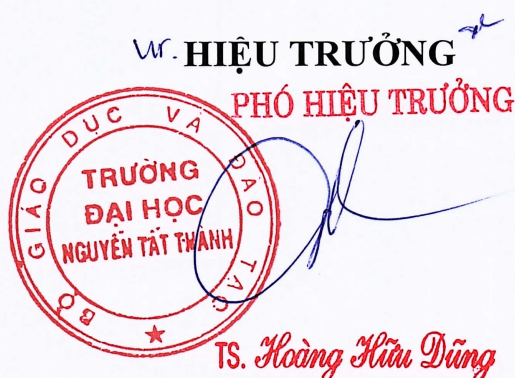 HIỆU TRƯỞNG
PHÓ HIỆU TRƯỞNG
BỘ GIÁO DỤC VÀ ĐÀO TẠO
TRƯỜNG
ĐẠI HỌC
NGUYỄN TẤT THÀNH
TS. Hoàng Hữu Dũng